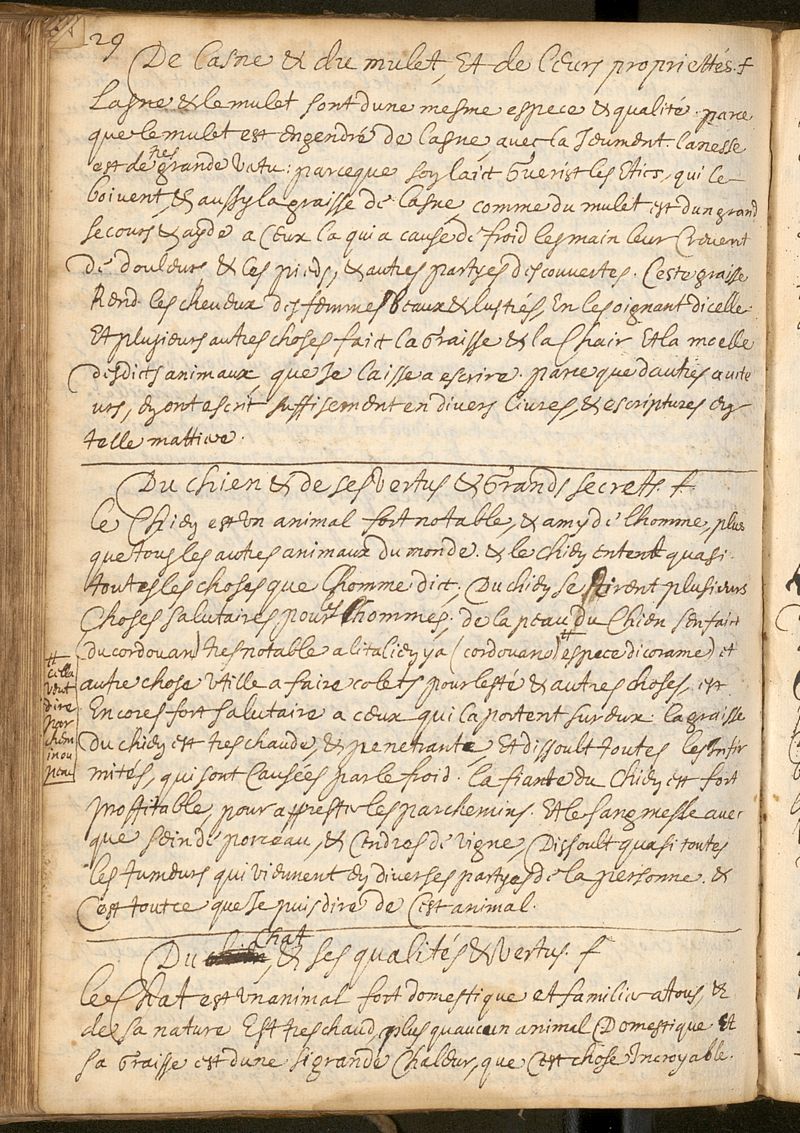 29
De lasne & du mulet, Et de lœurs propriettés. +
Lasne & le mulet sont dune mesme espece & qualité. parce
que le mulet est engendré de lasne, avec la Jeument. lanesse
est de tres grande vertu: parceque son laict Guerist les Etics, qui le
boivent, & aussy la graisse de lasne, comme du mulet est dun grand
secours & ayde a Ceux la qui a cause de froid les main leur Crevent
de douleurs & les pieds, & autres partyes descouvertes. Ceste graisse
Rend les cheveux des femmes beaux & lustrés, En les oignant dicelle.
Et plusieurs autres choses faict la Graisse & la Chair Et la moelle
desdicts animaux, que Je laisse a escrire. parce que dautres aucte
urs, en ont escrit suffisement en divers livres, & escriptures en
telle mattiere.
Du chien & de ses vertus & Grands secrets. +
le Chien est un animal fort notable, & amy de lhomme, plus
que tous les autres animaux du monde. & le chien entent quasi
toutes les choses que lhomme dict, Du chien se tirent plusieurs
Choses salutaires pour lhommes. de la peau du Chien sen faict
du cordouan) tres notable a litalienya (cordouano) # espece dicorame) et
autre chose utille a faire colets pour lesté & autres choses, est
Encores fort salutaire a cœux qui la portent sur eux. la graisse
Du chien est tres chaude, & penetrante, Et dissoult toutes les Infir
mités, qui sont Causées par le froid. la fiante du Chien est fort
proffitable, pour apprester les parchemins. Et le sang mesle avec
que sein de porceau, & Cendres de vigne, Dissoult quasi toutes
les tumeurs qui viennent en diverses partyes de la personne. &
C'est tout ce que Je puis dire de C'est animal.
# cella veut dire par chem in ou peau
Du chat, & ses qualités & vertus. +
le Chat est un animal fort domestique et familier a tous, &
de sa nature Est tres chaud, plus quaucun animal Domestique Et
sa Graisse est dune si grande Chaleur, que C'est chose Incroyable.